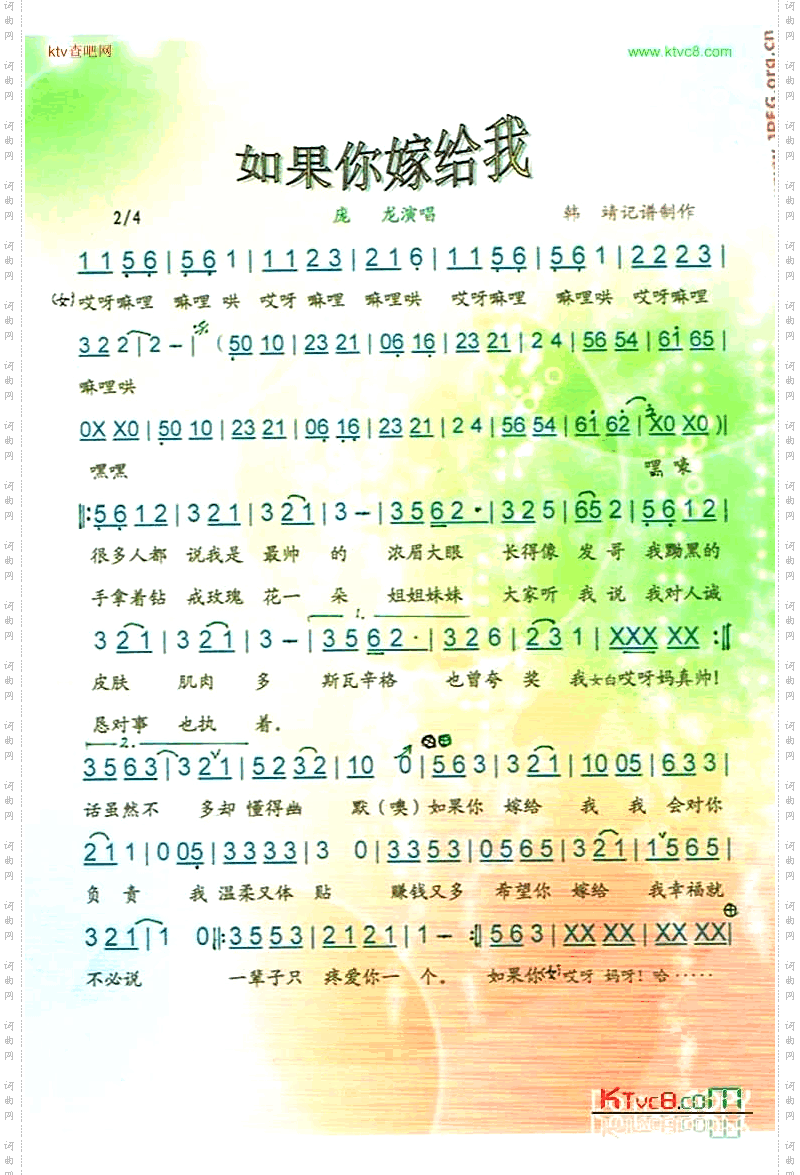 ktv查吧网 www.ktvc8.com
如果你嫁给我
2/4 庞 龙演唱 韩 靖记谱制作
1 1 5 6 | 5 6 1 | 1 1 2 3 | 2 1 6 | 1 1 5 6 | 5 6 1 | 2 2 2 3 |
(女)哎呀嘛哩 嘛哩 哄 哎呀 嘛哩 嘛哩哄 哎呀嘛哩 嘛哩哄 哎呀嘛哩
3 2 2 | 2 – | ( 50 10 | 23 21 | 06 16 | 23 21 | 2 4 | 56 54 | 61 65 |
嘛哩哄
0X X0 | 50 10 | 23 21 | 06 16 | 23 21 | 2 4 | 56 54 | 61 62 | X0 X0 )|
嘿嘿 嘿 嚎
‖: 5 6 1 2 | 3 2 1 | 3 2 1 | 3 – | 3 5 6 2 · | 3 2 5 | 65 2 | 5 6 1 2 |
很多人都 说我是 最帅 的 浓眉大眼 长得像 发 哥 我黝黑的
手拿着钻 戒玫瑰 花一 朵 姐姐妹妹 大家听 我 说 我对人诚
1.
3 2 1 | 3 2 1 | 3 – | 3 5 6 2 · | 3 2 6 | 2 3 1 | XXX XX :‖
皮肤 肌肉 多 斯瓦辛格 也曾夸 奖 我女白哎呀妈真帅!
恳对事 也执 着。
2.
3 5 6 3 | 3 2 1 | 5 2 3 2 | 1 0 0 | 5 6 3 | 3 2 1 | 1 0 0 5 | 6 3 3 |
话虽然不 多却 懂得幽 默(噢)如果你 嫁给 我 我 会对你
2 1 1 | 0 05 | 3 3 3 3 | 3 0 | 3 3 5 3 | 0 5 6 5 | 3 2 1 | 1 5 6 5 |
负 责 我 温柔又体 贴 赚钱又多 希望你 嫁给 我幸福就
3 2 1 | 1 0 ‖: 3 5 5 3 | 2 1 2 1 | 1 – :‖ 5 6 3 | XX XX | XX XX |
不必说 一辈子只 疼爱你一 个。 如果你(女)哎呀 妈呀! 哈······
KTvc8.com